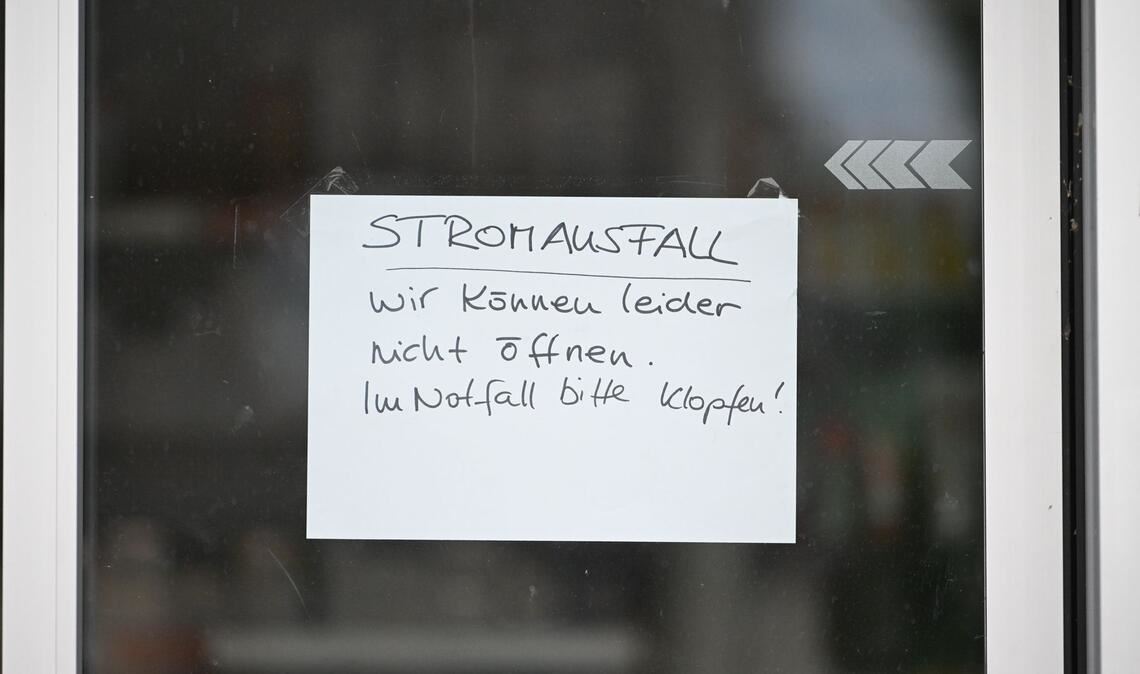 STROMAUSFALL
Wir können leider
nicht öffnen.
Im Notfall bitte klopfen!